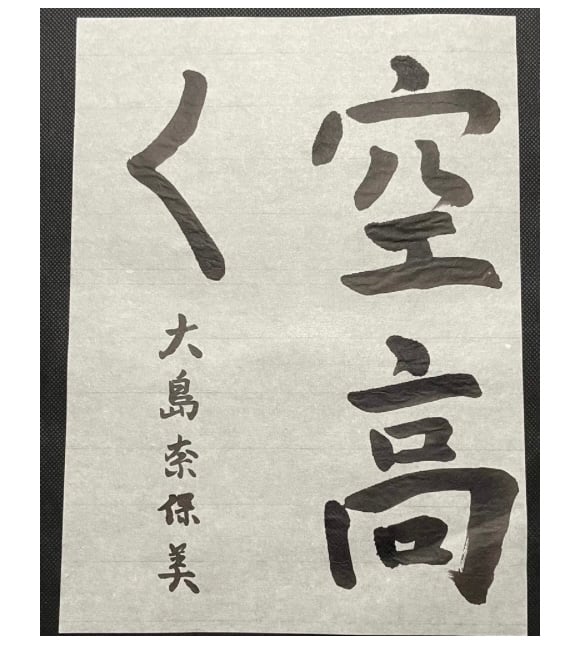 空高
く
大島奈保美